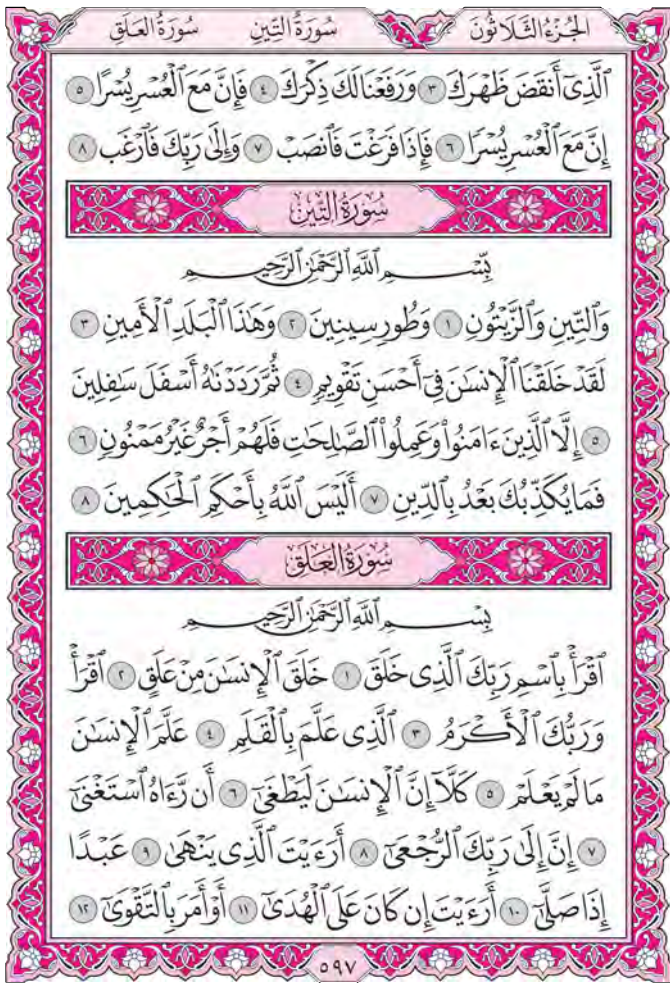 الجُزْءُ الثَّلَاثُونَ سُورَةُ التِّينِ سُورَةُ العَلَقِ
ٱلَّذِىٓ أَنقَضَ ظَهْرَكَ ٣ وَرَفَعْنَا لَكَ ذِكْرَكَ ٤ فَإِنَّ مَعَ ٱلْعُسْرِ يُسْرًا ٥
إِنَّ مَعَ ٱلْعُسْرِ يُسْرًا ٦ فَإِذَا فَرَغْتَ فَٱنصَبْ ٧ وَإِلَىٰ رَبِّكَ فَٱرْغَب ٨
سُورَةُ التِّينِ
بِّسْمِ ٱللَّهِ ٱلرَّحْمَٰنِ ٱلرَّحِيمِ
وَٱلتِّينِ وَٱلزَّيْتُونِ ١ وَطُورِ سِينِينَ ٢ وَهَٰذَا ٱلْبَلَدِ ٱلْأَمِينِ ٣
لَقَدْ خَلَقْنَا ٱلْإِنسَٰنَ فِىٓ أَحْسَنِ تَقْوِيمٍ ٤ ثُمَّ رَدَدْنَٰهُ أَسْفَلَ سَٰفِلِينَ
٥ إِلَّا ٱلَّذِينَ ءَامَنُوا۟ وَعَمِلُوا۟ ٱلصَّٰلِحَٰتِ فَلَهُمْ أَجْرٌ غَيْرُ مَمْنُونٍ ٦
فَمَا يُكَذِّبُكَ بَعْدُ بِٱلدِّينِ ٧ أَلَيْسَ ٱللَّهُ بِأَحْكَمِ ٱلْحَٰكِمِينَ ٨
سُورَةُ العَلَقِ
بِسْمِ ٱللَّهِ ٱلرَّحْمَٰنِ ٱلرَّحِيمِ
ٱقْرَأْ بِٱسْمِ رَبِّكَ ٱلَّذِى خَلَقَ ١ خَلَقَ ٱلْإِنسَٰنَ مِنْ عَلَقٍ ٢ ٱقْرَأْ
وَرَبُّكَ ٱلْأَكْرَمُ ٣ ٱلَّذِى عَلَّمَ بِٱلْقَلَمِ ٤ عَلَّمَ ٱلْإِنسَٰنَ
مَا لَمْ يَعْلَمْ ٥ كَلَّآ إِنَّ ٱلْإِنسَٰنَ لَيَطْغَىٰٓ ٦ أَن رَّءَاهُ ٱسْتَغْنَىٰٓ
٧ إِنَّ إِلَىٰ رَبِّكَ ٱلرُّجْعَىٰٓ ٨ أَرَءَيْتَ ٱلَّذِى يَنْهَىٰ ٩ عَبْدًا
إِذَا صَلَّىٰٓ ١٠ أَرَءَيْتَ إِن كَانَ عَلَى ٱلْهُدَىٰٓ ١١ أَوْ أَمَرَ بِٱلتَّقْوَىٰٓ ١٢
٥٩٧